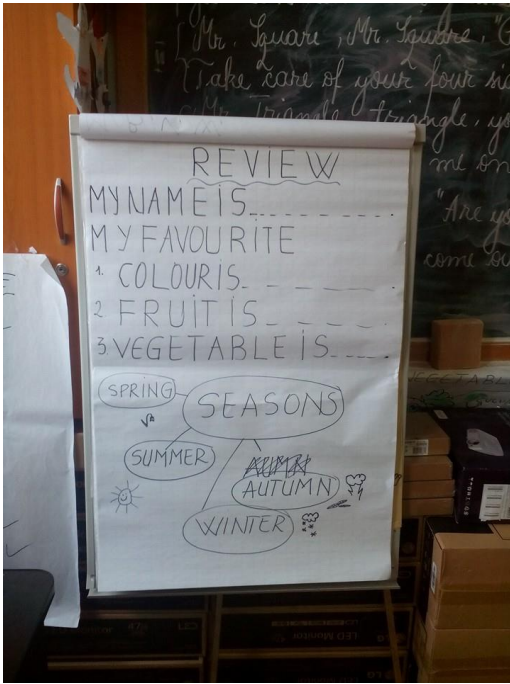 Mr. Square, Mr. Square,
Take care of your four
Mr. Triangle, triangle,
me on
"Are
come
REVIEW
MY NAME IS
MY FAVOURITE
1. COLOUR IS
2 FRUIT IS
3 VEGETABLE IS
SPRING
SEASONS
SUMMER
AUTUMN
WINTER
LED Monitor